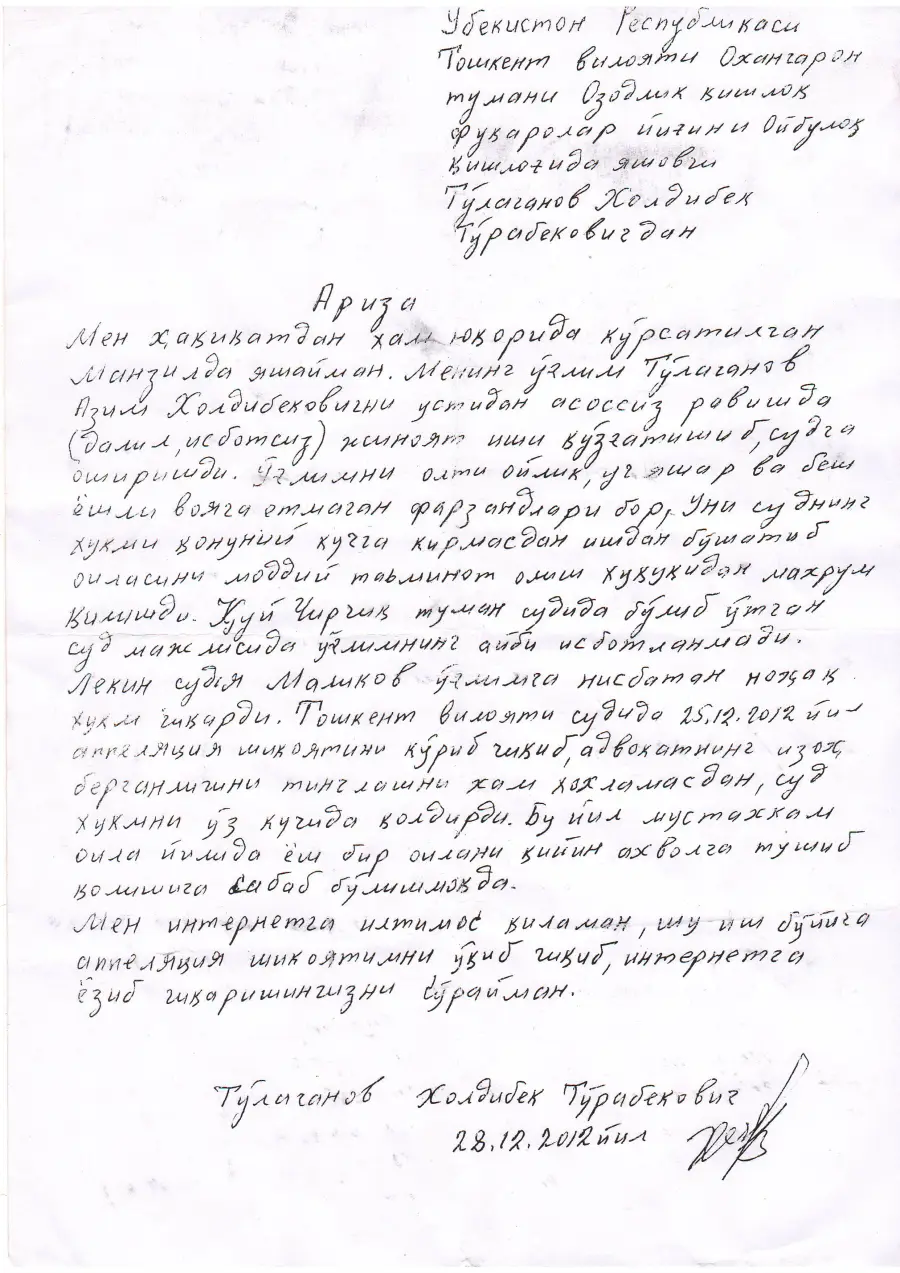 Убекистон Республикаси
Тошкент вилояти Охангарон
тумани Озодлик қишлоқ
фуқаролар йиғини Ойбулоқ
қишлоғида яшовчи
Тўлаганов Холдибек
Тўрабековичдан
Ариза
Мен ҳақиқатдан ҳам юқорида кўрсатилган
манзилда яшайман. Менинг ўғлим Тўлаганов
Азим Холдибековични устидан асоссиз равишда
(далил, исботсиз) жиноят иши қўзғатишиб, судга
оширишди. Ўғлимни олти ойлик, уч яшар ва беш
ёшли вояга етмаган фарзандлари бор, Уни суднинг
хукми қонуний кучга кирмасдан ишдан бўшатиб
оиласини моддий таъминот олиш хуқуқидан махрум
қилишди. Қуй Чирчиқ туман судида бўлиб ўтган
суд мажлисида ўғлимнинг айби исботланмади.
Лекин судья Машков ўғлимга нисбатан ноҳақ
хукм чиқарди. Тошкент вилояти судида 25.12.2012 йил
аппеляция шикоятини кўриб чиқиб, адвокатнинг изоҳ
берганлигини тинглашни хам хохламасдан, суд
хукмни ўз кучида қолдирди. Бу йил мустахкам
оила йилида ёш бир оилани қийин ахволга тушиб
қолишига сабаб бўлишмоқда.
Мен интернетга илтимос қиламан, шу иш бўйича
аппеляция шикоятимни ўқиб чиқиб, интернетга
ёзиб чиқаришингизни сўрайман.
Тўлаганов Холдибек Тўрабекович
28.12.2012 йил